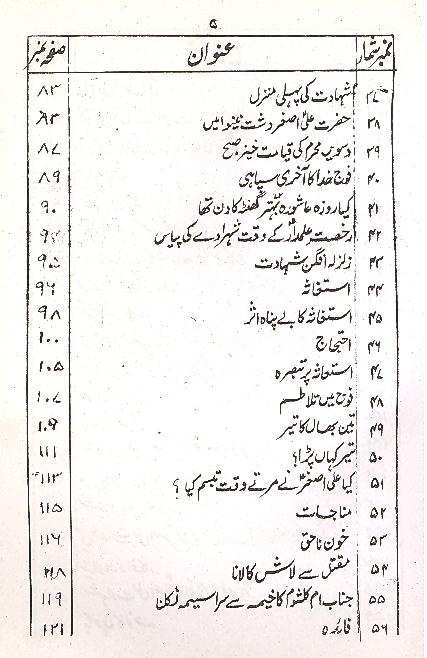 ۵
نمبر شمار عنوان صفحہ نمبر
۳۷ شہادت کی پہلی منزل ۸۳
۳۸ حضرت علی اصغرؑ دشت نینوا میں ۸۳
۳۹ دسویں محرم کی قیامت خیز صبح ۸۷
۴۰ فوج خدا کا آخری سپاہی ۸۹
۴۱ کیا روزہ عاشورہ بہتر گھنٹہ کا دن تھا ۹۰
۴۲ رخصت علمدارؑ کے وقت شہزادے کی پیاس
۴۳ زلزلہ افگن شہادت ۹۵
۴۴ استغاثہ ۹۶
۴۵ استغاثہ کا بے پناہ اثر ۹۸
۴۶ احتجاج ۱۰۰
۴۷ استغاثہ پر تبصرہ ۱۰۵
۴۸ فوج میں تلاطم ۱۰۷
۴۹ تین بھال کا تیر ۱۰۹
۵۰ تیر کہاں پڑا؟ ۱۱۱
۵۱ کیا علی اصغرؑ نے مرتے وقت تبسم کیا ؟ ۱۱۳
۵۲ مناجات ۱۱۵
۵۳ خون ناحق ۱۱۶
۵۴ مقتل سے لاش کا لانا ۱۱۸
۵۵ جناب ام کلثوم کا خیمہ سے سراسیمہ نکلنا ۱۱۹
۵۶ فائدہ ۱۲۱